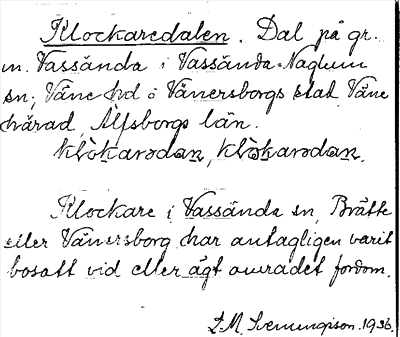 Klockaredalen. Dal på gr.
m. Vassända i Vassända-Naglum
sn, Väne hd o Vänersborgs stad, Väne
härad, Älfsborgs län.
klòkarədan, klòkarədan.
Klockare i Vassända sn, Brätte
eller Vänersborg har antagligen varit
bosatt vid eller ägt området fordom.
L.M. Svenungsson. 1936.